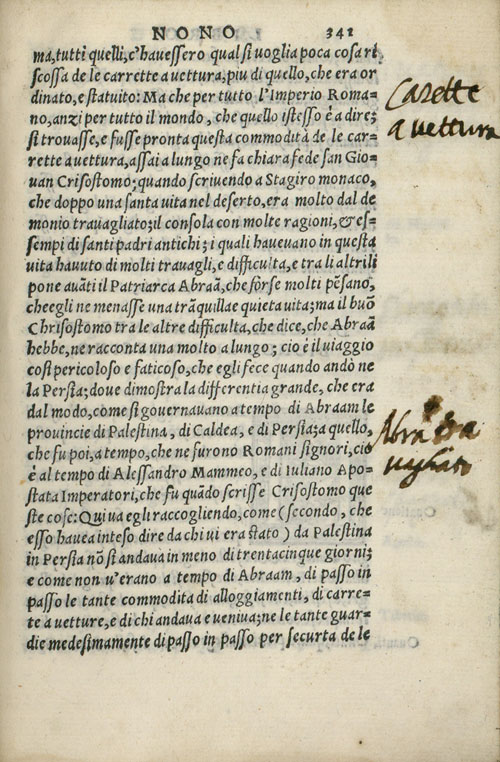 NONO 341
ma, tutti quelli, c'havessero qual si voglia poca cosa ri
scossa de le carrette a vettura, piu di quello, che era or
dinato, e statuito: Ma che per tutto l'Imperio Roma=
no, anzi per tutto il mondo, che quello istesso è a dire;
si trovasse, e fusse pronta questa commodità de le car=
rette a vettura, assai a lungo ne fa chiara fede san Gio=
van Crisostomo; quando scrivendo a Stagiro monaco,
che doppo una santa vita nel deserto, era molto dal de
monio travagliato; il consola con molte ragioni, & es=
sempi di santi padri antichi; i quali havevano in questa
vita havuto di molti travagli, e difficulta, e tra li altri li
pone avāti il Patriarca Abraā, che forse molti pēsano,
che egli ne menasse una trāquilla e quieta vita; ma il buō
Chrisostomo tra le altre difficulta, che dice, che Abraā
hebbe, ne racconta una molto a lungo; cio è il viaggio
cosi pericoloso e faticoso, che egli fece quando andò ne
la Persia; dove dimostra la differentia grande, che era
dal modo, come si governavano a tempo di Abraam le
provincie di Palestina, di Caldea, e di Persia; a quello,
che fu poi, a tempo, che ne furono Romani signori, cio
è al tempo di Alessandro Mammeo, e di Iuliano Apo=
stata Imperatori, che fu quādo scrisse Crisostomo que
ste cose: Qui va egli raccogliendo, come (secondo, che
esso havea inteso dire da chi vi era stato) da Palestina
in Persia nō si andava in meno di trentacinque giorni;
e come non v'erano a tempo di Abraam, di passo in
passo le tante commodita di alloggiamenti, di carre=
te a vetture, e di chi andava e veniva; ne le tante guar=
die medesimamente di passo in passo per securta de le
Carette
a vettura
Abraā